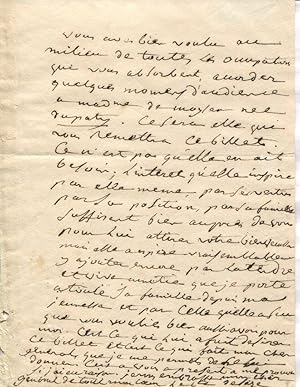 vous avés bien voulu au
milieu de toutes les occupations
qui vous absorbent, accorder
quelques momens d'audience
à madme de
dupaty. Ce sera elle qui
vous remettra ce billet.
Ce n'est pas qu'elle en ait
besoin, l'interet qu'elle inspire
par elle meme, par ses vertus
par sa position, par sa famille
suffisent bien auprès de vous
pour lui attirer votre bienveillance
mais elle a espéré vraisemblablement
y ajouter encore par la tendre
et vive amitié que je porte
à toute sa famille depuis ma
jeunesse et par celle qu'elle a su
que vous vouliés bien aussi avoir pour
moi. C'est là ce qui lui a fait desirer
ce billet et c'est ce qui fait mon cher
général, que je me permets de
donner
general de tout mon coeur